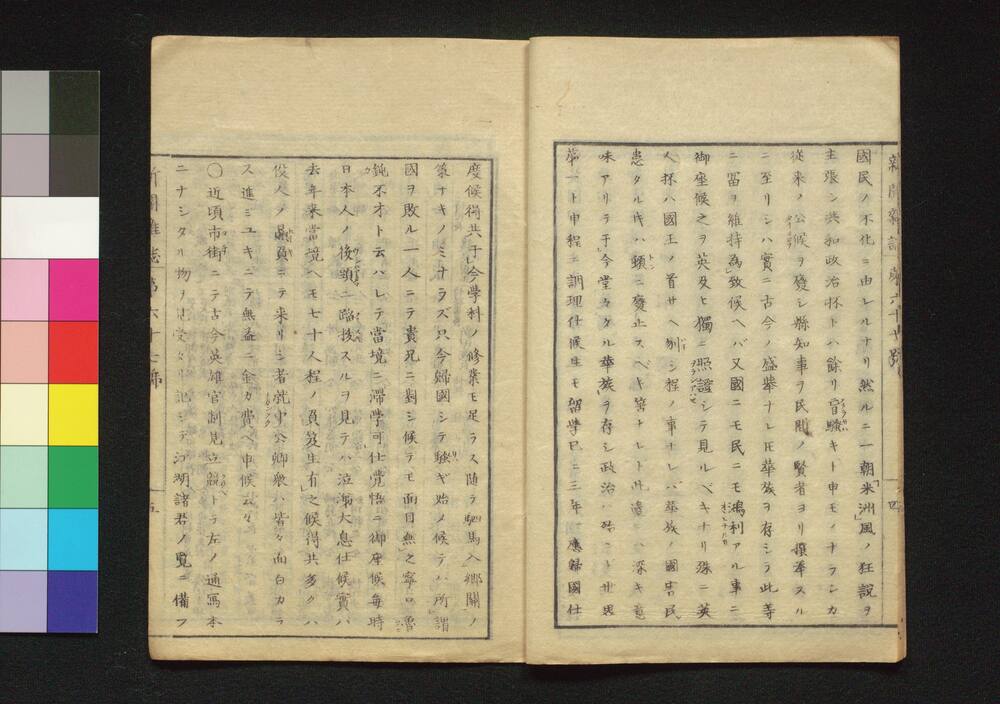 國民ノ不化ニ由レルナリ然ルニ一朝「米洲風」ノ狂説ヲ
主張シ共和政治抔トハ餘リ冒險キト申モノナランカ
從来ノ公候ヲ廢シ縣知事ヲ民間ノ賢者ヨリ撰挙スル
ニ至リシハ實ニ古今ノ盛挙ナレ𪜈華族ヲ存シテ此等
ニ冨ヲ維持為致候ヘバ又國ニモ民ニモ鴻利アル事ニ
御座候之ヲ英及ヒ獨ニ照證シテ見ルベキナリ殊ニ英
人抔ハ國王ノ首サヘ刎シ程ノ事ナレバ華族ノ國害民
患タル𪜈ハ頓ニ廢止スベキ筈ナレト此邊ハ深キ意
味アリテ于今堂々タル華族ヲ存シ政治ハ
第一ト申程ニ調理仕候生モ留學已ニ三年應歸國仕
新聞雑誌 第六十七号
四
度候得共于今學科ノ修業モ足ラス随テ駟馬入郷關ノ
策ナキノミナラズ只今婦國シテ騒ギ始メ候テハ所謂
國ヲ敗ル一人ニテ貴兄ニ對シ候テモ面目無之寧ロ魯
鈍不才ト云ハレテ當境ニ滞學可仕覚悟ニ御座候毎時
日本人ノ後頸ニ臨按スルヲ見テハ泣涕大息仕候實ハ
去年来當境ヘモ七十人程ノ負笈生有之候得共多クハ
役人ノ贔負ニテ来リシ者就中公卿衆ハ皆々面白カラ
ス進ミユキニテ無益ニ金カ費ヘ申候云々
〇近頃市街ニテ古今英雄官制見立競トテ左ノ通寫本
ニナシタル物ヲ見受タリ記シテ江湖諸君ノ覧ニ備フ
新聞雑誌 第六十七号
五